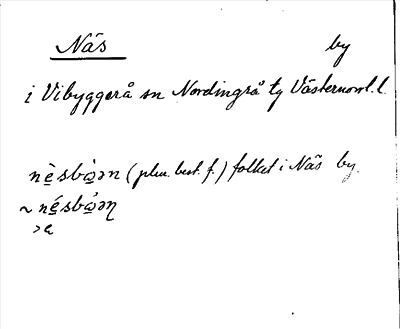 Näs by
i Vibyggerå sn Nordingrå tg Västernorrl. l.
nèsbòən (plur. best. f.) folket i Näs by.
~ nésbòəŋ
>e